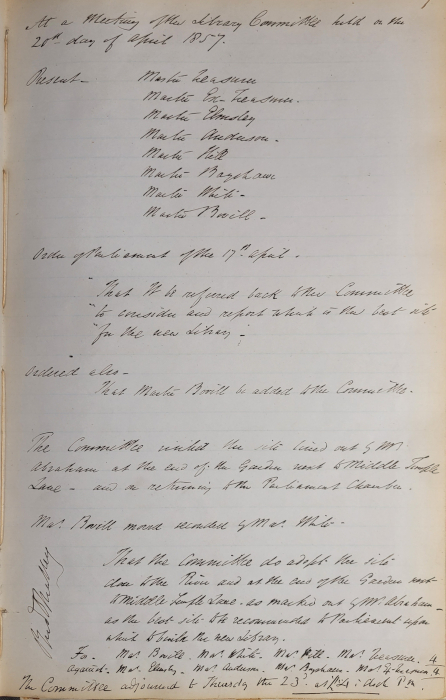 At a Meeting of the Library Committee held on the
20th day of April 1857.
Present -
Master Treasurer
Master Ex-Treasurer.
Master Elmsley
Master Anderson.
Master Hill
Master Bagshawe
Master White -
Master Bovill -
Order of Parliament of the 17th April -
"That it be referred back to the Committee
"to consider and report what is the best site
"for the new Library -"
Ordered also -
That Master Bovill be added to the Committee.
The Committee visited the site lined out by Mr
Abraham at the end of the Garden next to Middle Temple
Lane - and on returning to the Parliament Chamber.
Mas. Bovill moved seconded by Mas. White -
That the Committee do adopt the site
close to the River and at the end of the Garden next
to Middle Temple Lane. as marked out by Mr Abraham -
as the best site to recommend to Parliament upon
which to build the new Library.
For - Mas. Bovill. Mas. White. Mas. Hill. Mas. Treasurer. 4
against - Mas. Elmsley - Mas. Anderson. Mas. Bagshawe - Mas. Ex-Treasurer. 4
The Committee adjourned to Thursday the 23d at